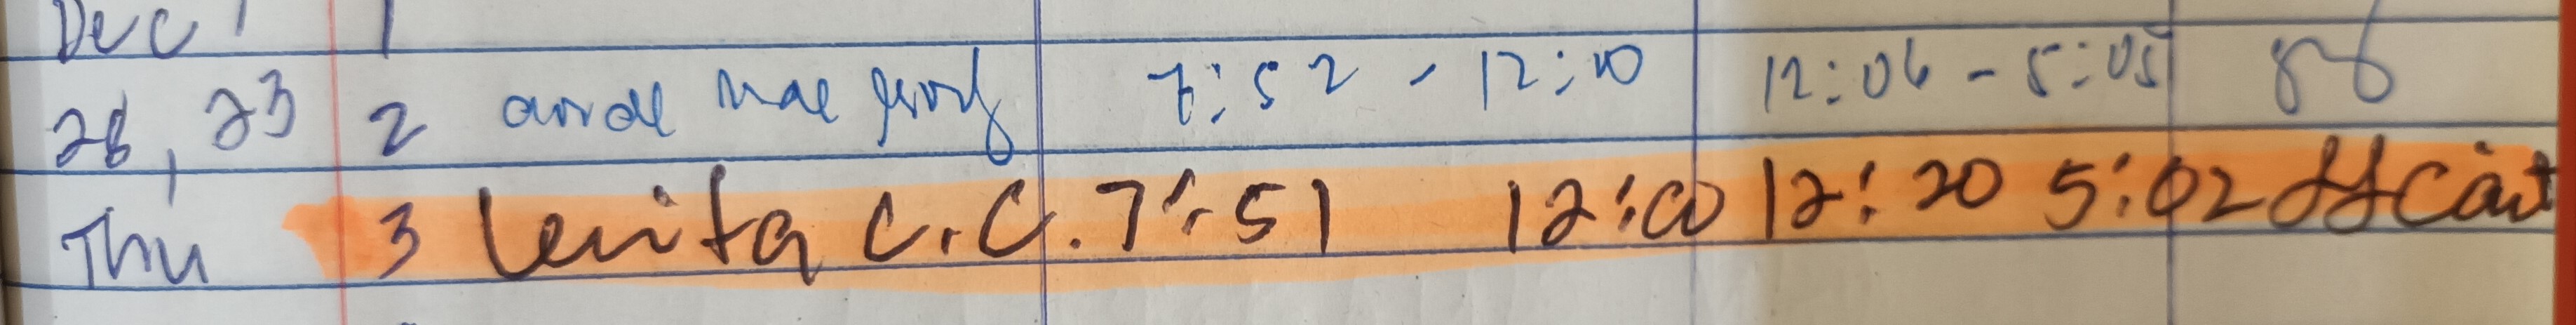 Dec 1
28, 23 2 mae 7:52 - 12:00 12:06 - 5:05
Thu 3 Lenita C.C. 7:51 12:00 12:20 5:02